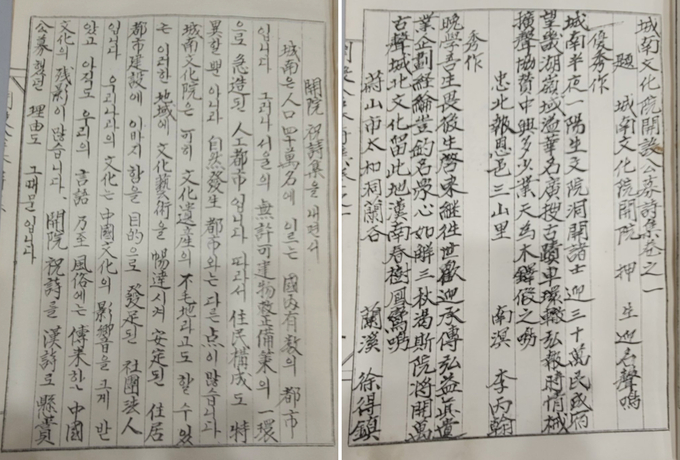 開院 祝詩集을 내면서
城南은 人口 四十萬名에 이르는 國內有數의 都市
입니다 그러나 서울의 無許可建物整備策의 一環
으로 急造된 人工都市입니다 따라서 住民構成도 特
異할 뿐 아니라 自然發生 都市와는 다른 点이 많습니다
城南文化院은 可히 文化遺産의 不毛地라고도 할 수 있
는 이러한 地域에 文化藝術을 暢達시켜 安定된 住居
都市建設에 이바지 함을 目的으로 發足된 社團法人
입니다 우리나라의 文化는 中國文化의 影響을 크게 받
았고 아직도 우리의 言語 乃至 風俗에는 傳来한 中國
文化의 残影이 많습니다. 開院 祝詩를 漢詩로 懸賞
公募했던 理由도 그때문입니다
城南文化院開設公募詩集卷之一
題 城南文化院開院 押 生迎名聲鳴
優秀作
城南半夜一陽生文院洞開諸士迎三十萬民府
望畿湖嶺域溢華名廣搜古蹟車環轍弘報時情械
擴聲協贊中興多少業天爲木鐸之鳴
忠北報恩邑三山里 南溟 李丙翰
秀作
晩學吾生畏後生啓來継往世歡迎承傳弘益眞遺
業企劃經綸豈釣名勞心如解三秋渴斯院將開萬
古聲城北文化留此地漢南春樹鳳鸞鳴
蔚山市太和洞蘭谷 蘭溪 徐得鎭